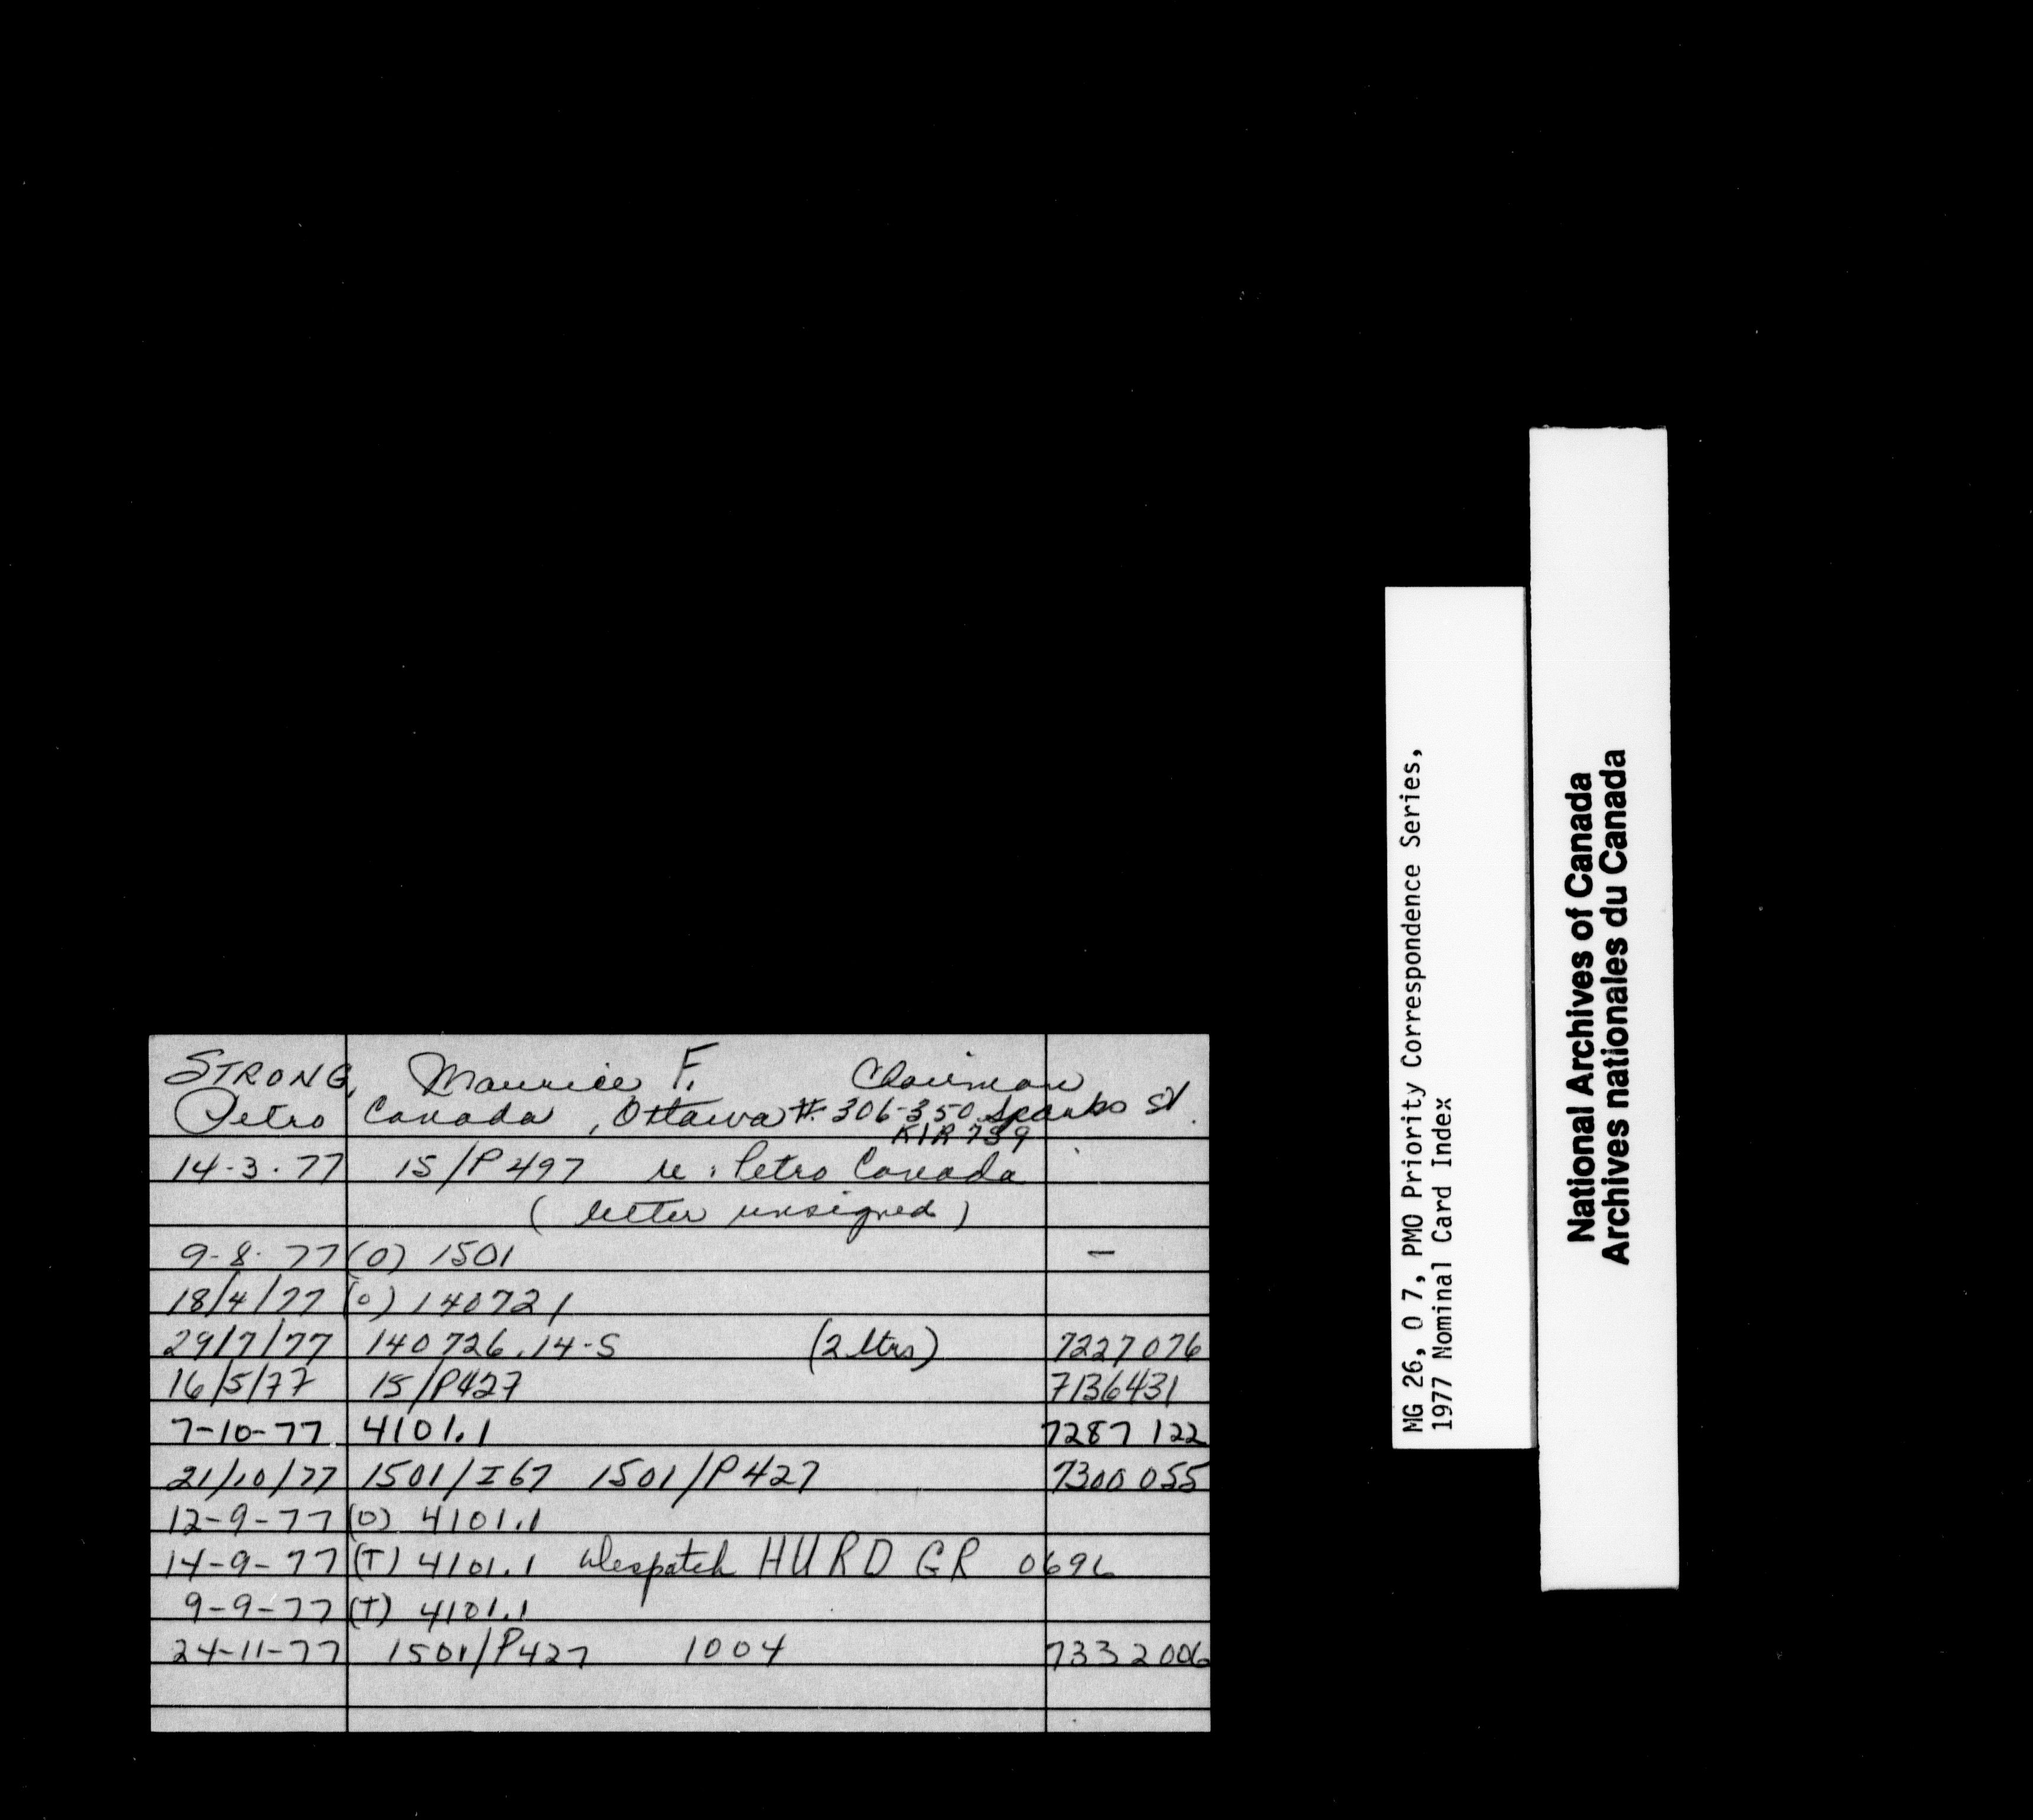 STRONG, Maurice F. Chairman
Petro Canada, Ottawa #306-350 Sparks St.
K1R 7S9
14-3-77 15/P497 re: Petro Canada
(letter unsigned)
9-8-77 (O) 1501 —
18/4/77 (O) 140721
29/7/77 140726.14-S (2 ltrs) 7227076
16/5/77 15/P427 7136431
7-10-77 4101.1 7287 122
21/10/77 1501/I67 1501/P427 7300 055
12-9-77 (O) 4101.1
14-9-77 (T) 4101.1 despatch HURD GR 0696
9-9-77 (T) 4101.1
24-11-77 1501/P427 1004 7332006
MG 26, O 7, PMO Priority Correspondence Series,
1977 Nominal Card Index
National Archives of Canada
Archives nationales du Canada